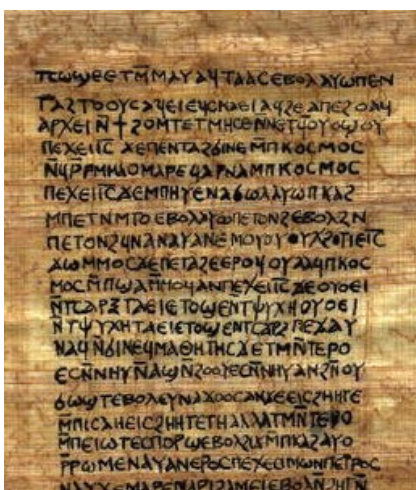 ⲡⲥⲱϣⲉⲉⲧⲙ̅ⲙⲁⲩⲁϥⲧⲁⲁⲥⲉⲃⲟⲗⲁⲩⲱⲡⲉⲛ
ⲧⲁϩⲧⲟⲟⲩⲥⲁϥⲉⲓⲉϥⲥⲕⲁⲉⲓⲁϥϩⲉⲁⲡⲉϩⲟⲁϥ
ⲁⲣⲭⲉⲓⲛ̅ϯϩⲟⲙⲧⲉⲧⲙⲏⲥⲉⲛⲛⲉⲧϥⲟⲩⲟϣⲟⲩ
ⲡⲉϫⲉⲓ̅ⲥ̅ϫⲉⲡⲉⲛⲧⲁϩϭⲓⲛⲉⲙ̅ⲡⲕⲟⲥⲙⲟⲥ
ⲛ̅ϥⲣ̅ⲣⲙⲙⲁⲟⲙⲁⲣⲉϥⲁⲣⲛⲁⲙⲡⲕⲟⲥⲙⲟⲥ
ⲡⲉϫⲉⲓ̅ⲥ̅ϫⲉⲙⲡⲏⲩⲉⲛⲁϭⲱⲗⲁⲩⲱⲡⲕⲁϩ
ⲙⲡⲉⲧⲛⲙⲧⲟⲉⲃⲟⲗⲁⲩⲱⲡⲉⲧⲟⲛϩⲉⲃⲟⲗϩⲛ
ⲡⲉⲧⲟⲛϩϥⲛⲁⲛⲁⲩⲁⲛⲉⲙⲟⲩⲟⲩⲭϩⲟⲧⲓⲉⲓ̅ⲥ̅
ϫⲱⲙⲙⲟⲥϫⲉⲡⲉⲧⲁϩⲉⲉⲣⲟϥⲟⲩⲁⲁϥⲡⲕⲟⲥ
ⲙⲟⲥⲙ̅ⲡϣⲁⲙ̅ⲙⲟϥⲁⲛⲡⲉϫⲉⲓ̅ⲥ̅ϫⲉⲟⲩⲟⲉⲓ
ⲛ̅ⲧⲥⲁⲣⲝⲧⲁⲉⲓⲉⲧⲟϣⲉⲛⲧⲯⲩⲭⲏⲟⲩⲟⲉⲓ
ⲛ̅ⲧⲯⲩⲭⲏⲧⲁⲉⲓⲉⲧⲟϣⲉⲛⲧⲥⲁⲣⲝⲡⲉϫⲁⲩ
ⲛⲁϥⲛ̅ϭⲓⲛⲉϥⲙⲁⲑⲏⲧⲏⲥϫⲉⲧⲙⲛ̅ⲧⲉⲣⲟ
ⲉⲥⲛ̅ⲛⲏⲩⲛ̅ⲁϣⲛ̅ϩⲟⲟⲩⲉⲥⲛ̅ⲛⲏⲩⲁⲛϩⲛ̅ⲟⲩ
ϭⲱϣⲧⲉⲃⲟⲗⲉⲩⲛⲁϫⲟⲟⲥⲁⲛϫⲉⲉⲓⲥϩⲏⲏⲧⲉ
ⲙ̅ⲡⲓⲥⲁⲏⲉⲓⲥϩⲏⲏⲧⲉⲧⲏⲁⲗⲗⲁⲧⲙⲛ̅ⲧⲉⲣⲟ
ⲙ̅ⲡⲉⲓⲱⲧⲉⲥⲡⲟⲣϣⲉⲃⲟⲗϩⲓϫⲙ̅ⲡⲕⲁϩⲁⲩⲱ
ⲣ̅ⲣⲱⲙⲉⲛⲁⲩⲁⲛⲉⲣⲟⲥⲡⲉϫⲉⲥⲓⲙⲱⲛⲡⲉⲧⲣⲟⲥ
ⲛⲁⲩϫⲉⲙⲁⲣⲉⲙⲁⲣⲓϩⲁⲙⲉⲓⲉⲃⲟⲗⲛ̅ϩⲏⲧⲛ̅